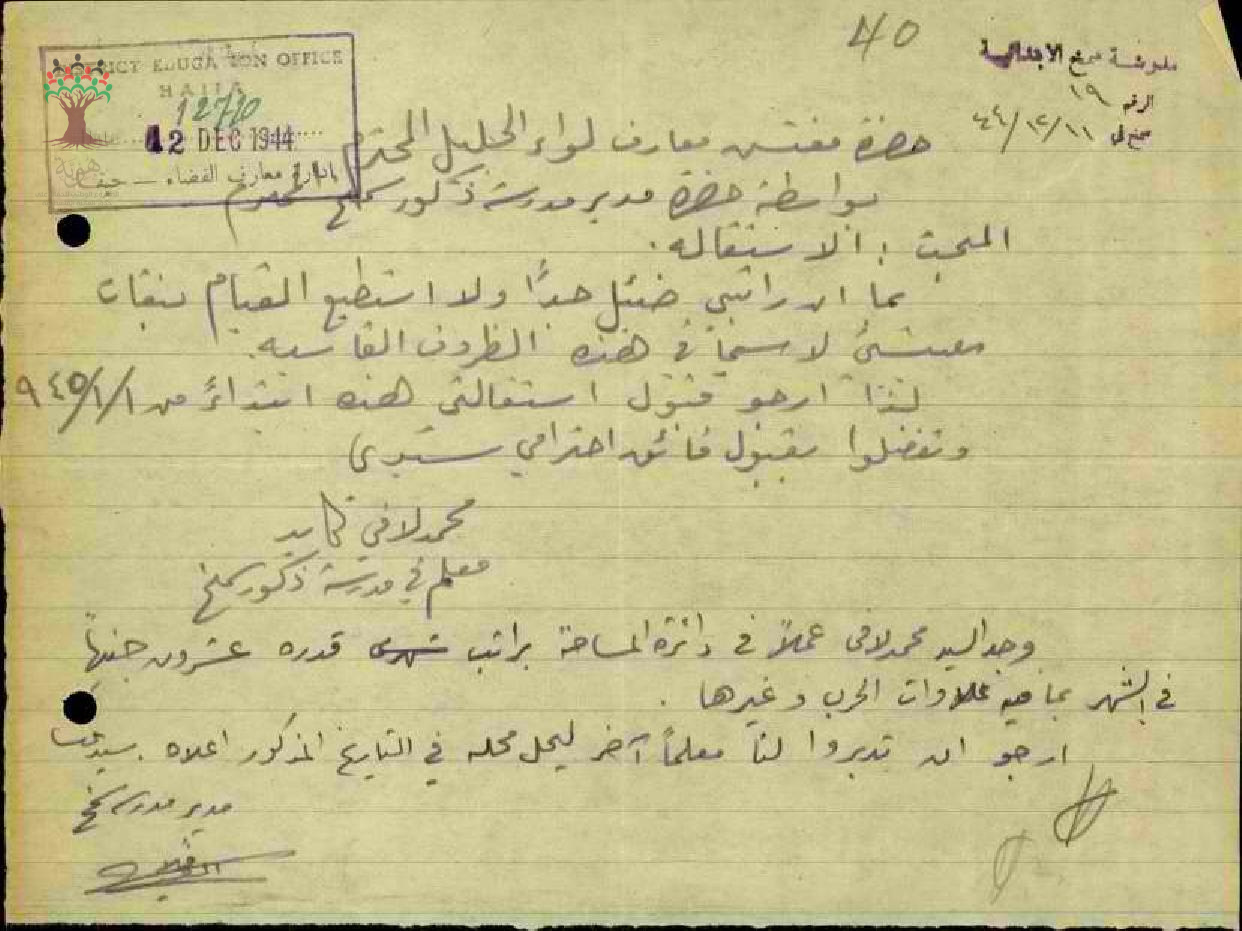 40
مدرسة سمخ الابتدائية
الرقم ١٩
سمخ في ٤٤/١٢/١١
DISTRICT EDUCATION OFFICE
HAIFA
12710
Date
12 DEC 1944
إدارة معارف القضاء — حيفا
حضرة مفتش معارف لواء الجليل المحترم
بواسطة حضرة مدير مدرسة ذكور سمخ المحترم
المبحث : الاستقاله .
بما ان راتبي ضئيل جدًا ولا استطيع القيام بنفقات
معيشتي لا سيما في هذه الظروف القاسيه .
لذا ارجو قبول استقالتي هذه ابتداءً من ٩٤٥/١/١
وتفضلوا بقبول فائق احترامي سيدي
محمد لافي
معلم في مدرسة ذكور سمخ
وجد السيد محمد لافي عملاً في دائرة المساحة براتب شهري قدره عشرون جنيهاً
في الشهر بما فيه علاوات الحرب وغيرها .
ارجو ان تدبروا لنا معلماً آخر ليحل محله في التاريخ المذكور اعلاه .
مدير مدرسة سمخ